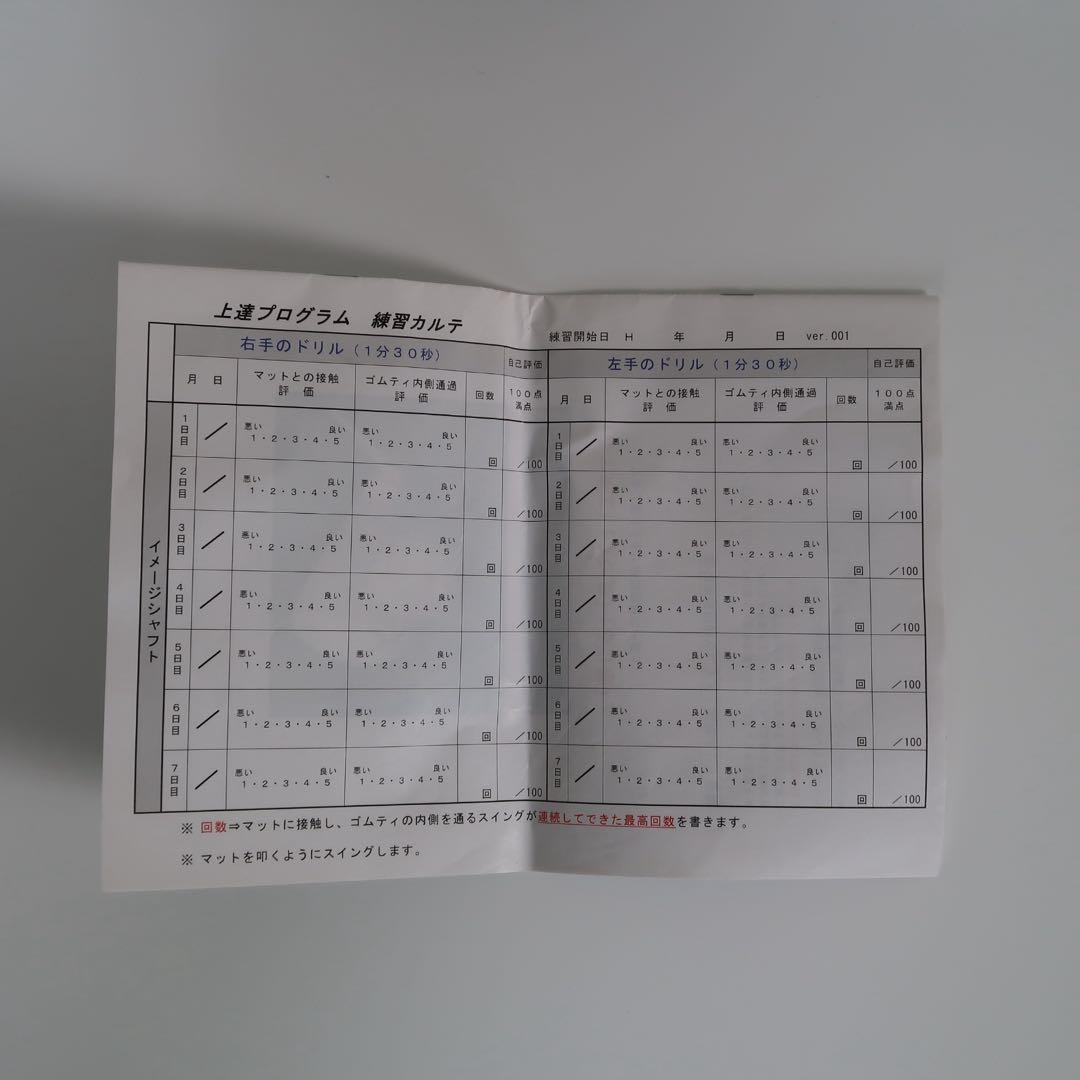 上達プログラム　練習カルテ
練習開始日　H　　年　　月　　日　ver.001
イメージシャフト
右手のドリル（1分30秒）
自己評価
月　日
マットとの接触
評　価
ゴムティ内側通過
評　価
回数
100点
満点
1日目 ／ 悪い 良い 1・2・3・4・5 悪い 良い 1・2・3・4・5 回 ／100
2日目 ／ 悪い 良い 1・2・3・4・5 悪い 良い 1・2・3・4・5 回 ／100
3日目 ／ 悪い 良い 1・2・3・4・5 悪い 良い 1・2・3・4・5 回 ／100
4日目 ／ 悪い 良い 1・2・3・4・5 悪い 良い 1・2・3・4・5 回 ／100
5日目 ／ 悪い 良い 1・2・3・4・5 悪い 良い 1・2・3・4・5 回 ／100
6日目 ／ 悪い 良い 1・2・3・4・5 悪い 良い 1・2・3・4・5 回 ／100
7日目 ／ 悪い 良い 1・2・3・4・5 悪い 良い 1・2・3・4・5 回 ／100
左手のドリル（1分30秒）
自己評価
月　日
マットとの接触
評　価
ゴムティ内側通過
評　価
回数
100点
満点
1日目 ／ 悪い 良い 1・2・3・4・5 悪い 良い 1・2・3・4・5 回 ／100
2日目 ／ 悪い 良い 1・2・3・4・5 悪い 良い 1・2・3・4・5 回 ／100
3日目 ／ 悪い 良い 1・2・3・4・5 悪い 良い 1・2・3・4・5 回 ／100
4日目 ／ 悪い 良い 1・2・3・4・5 悪い 良い 1・2・3・4・5 回 ／100
5日目 ／ 悪い 良い 1・2・3・4・5 悪い 良い 1・2・3・4・5 回 ／100
6日目 ／ 悪い 良い 1・2・3・4・5 悪い 良い 1・2・3・4・5 回 ／100
7日目 ／ 悪い 良い 1・2・3・4・5 悪い 良い 1・2・3・4・5 回 ／100
※ 回数⇒マットに接触し、ゴムティの内側を通るスイングが連続してできた最高回数を書きます。
※ マットを叩くようにスイングします。